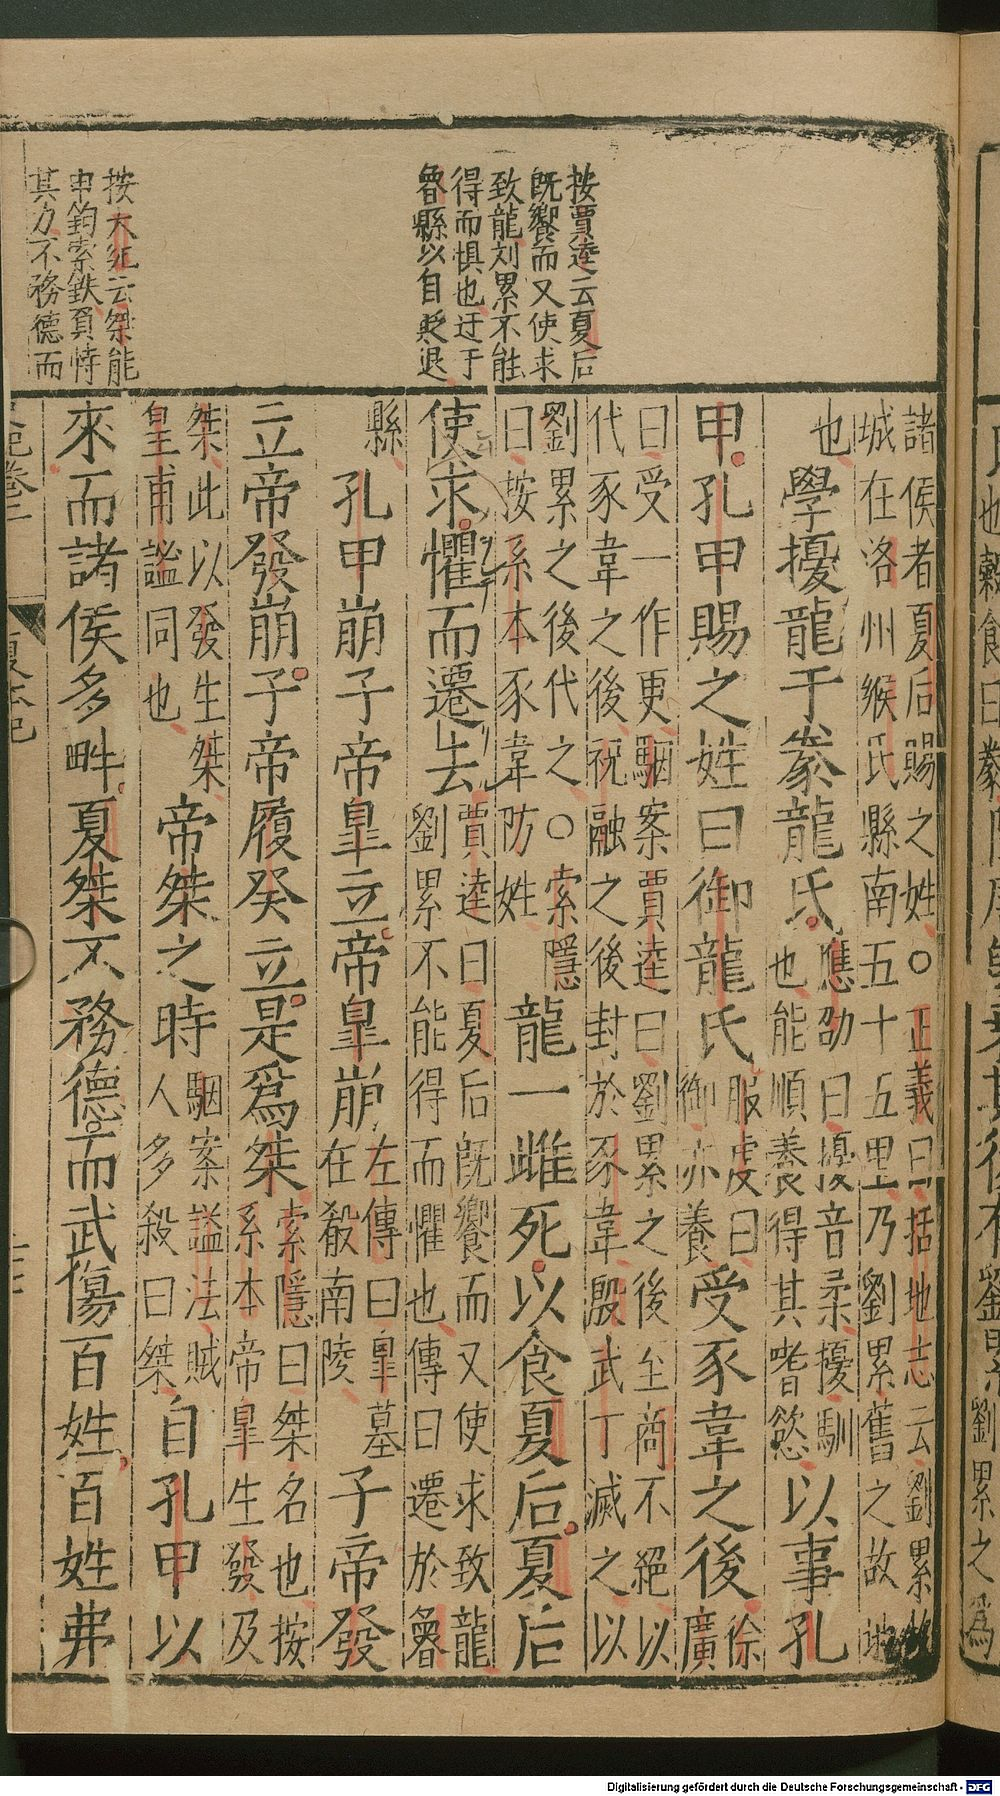 按賈逵云夏后
旣饗而又使求
致龍刘累不能
得而惧也迁于
魯縣以自貶退
按大紀云桀能
申鈎索鉄負恃
其力不務德而
諸侯者夏后賜之姓○正義曰括地志云劉累故
城在洛州緱氏縣南五十五里乃劉累舊之故地
也學擾龍于豢龍氏
應劭曰擾音柔擾馴
也能順養得其嗜慾
以事孔
甲孔甲賜之姓曰御龍氏
服虔曰
御亦養
受豕韋之後
徐
廣
曰受一作更駰案賈逵曰劉累之後至商不絕以
代豕韋之後祝融之後封於豕韋殷武丁滅之以
劉累之後代之○索隱
曰按系本豕韋防姓
龍一雌死以食夏后夏后
使求懼而遷去
賈逵曰夏后旣饗而又使求致龍
劉累不能得而懼也傳曰遷於魯
縣
孔甲崩子帝皐立帝皐崩
左傳曰皐墓
在殽南陵
子帝發
立帝發崩子帝履癸立是爲桀
索隱曰桀名也按
系本帝皐生發及
桀此以發生桀
皇甫謐同也
帝桀之時
駰案謚法賊
人多殺曰桀
自孔甲以
來而諸侯多畔夏桀不務德而武傷百姓百姓弗
夏本紀
Digitalisierung gefördert durch die Deutsche Forschungsgemeinschaft - DFG